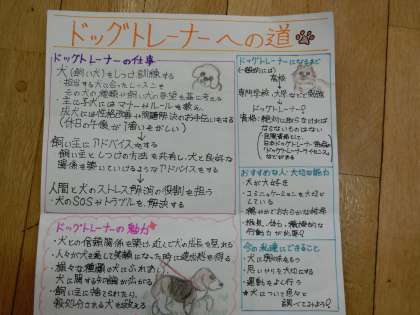 ドッグトレーナーへの道
ドッグトレーナーの仕事
犬(飼い犬)をしつけ訓練する
担当する犬に合ったレッスンを
犬の種類や飼い主の希望を基に考える
主に子犬にはマナーやルールを教え
成犬には性格改善や問題解決のお手伝いをする
飼い主にアドバイスをする
飼い主としつけの方法を共有し、犬と良好な
関係を築いていけるようなアドバイスをする
人間と犬のストレス解消の役割も担う
犬のSOSやトラブルを解決する
ドッグトレーナーの魅力
・犬との信頼関係を築け、近くで犬の成長を見れる
・人々が犬を通して笑顔になった時に達成感を得る
・様々な種類の犬にふれあい
犬に関する知識が広がる
・飼い主に捨てられたり、
殺処分される犬を救える
ドッグトレーナーになるまで
(一般的には)
高校
専門学校、大学などで勉強
ドッグトレーナー
資格:絶対に取らなければ
ならないものはない
おすすめな人・大切な能力
・犬が大好き
・コミュニケーションを大切に
している
行動力が必要
今の私達にできること
・犬に興味をもつ
・思いやりを大切にする
・運動をよく行う
★犬について色々と
調べてみよう